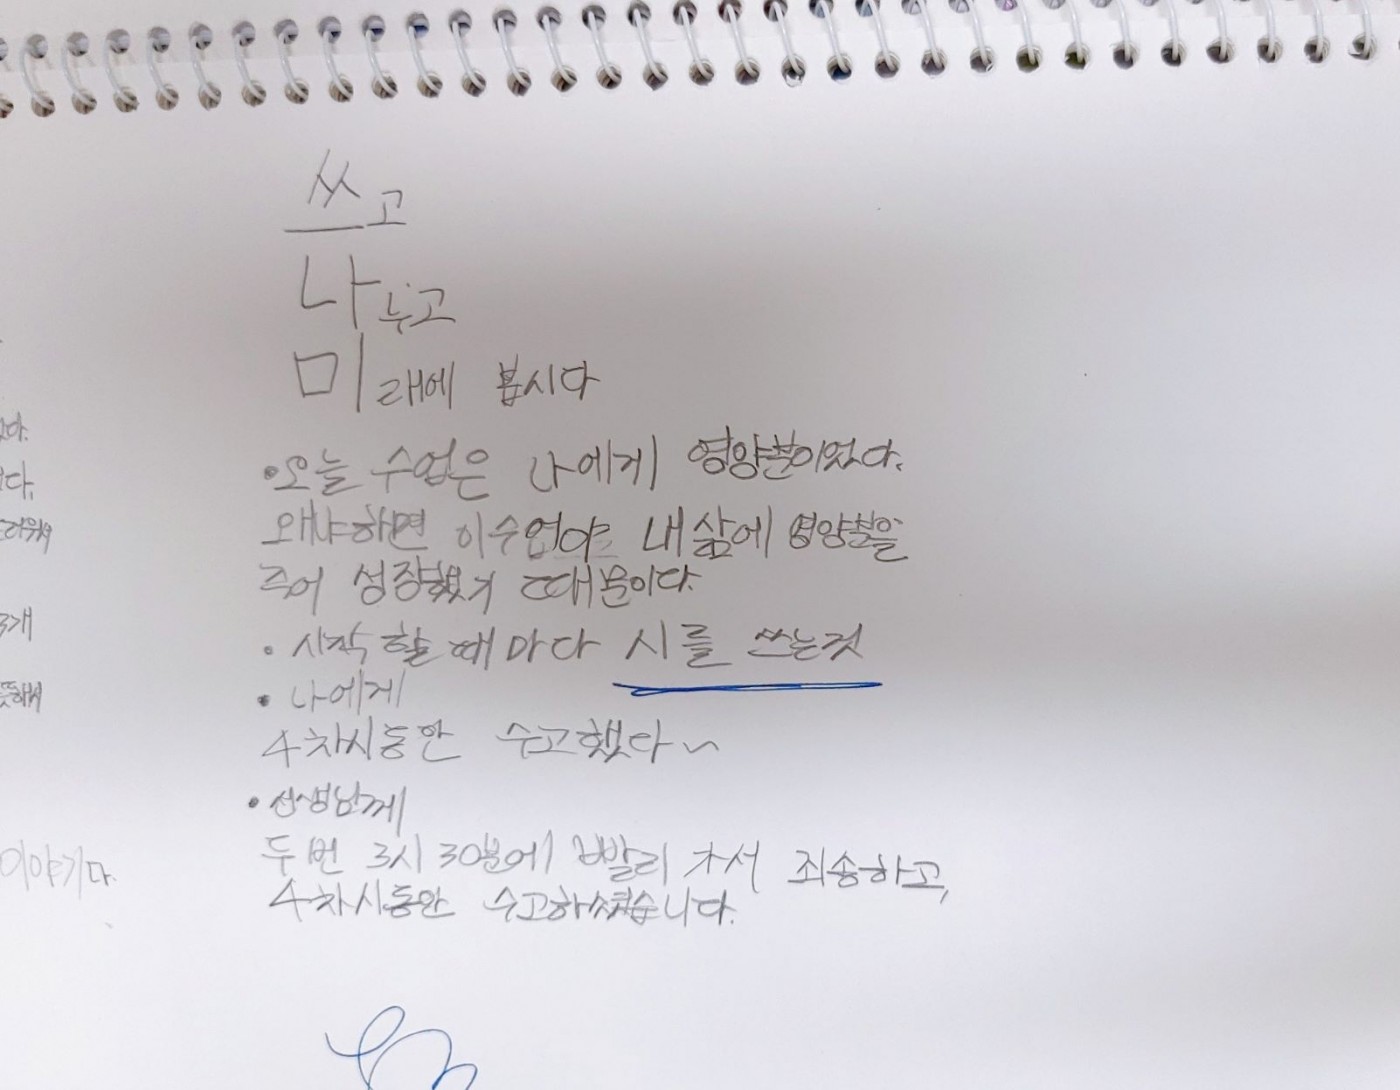 쓰고
나누고
미래에 봅시다
•오늘 수업은 나에게 영양분이었다.
왜냐하면 이수업이 내삶에 영양분을
주어 성장했기 때문이다.
• 시작할때마다 시를 쓰는것
• 나에게
4차시동안 수고했다~
• 선생님께
두번 3시 30분에 빨리 가서 죄송하고,
4차시동안 수고하셨습니다.
다.
3개
이야기다.